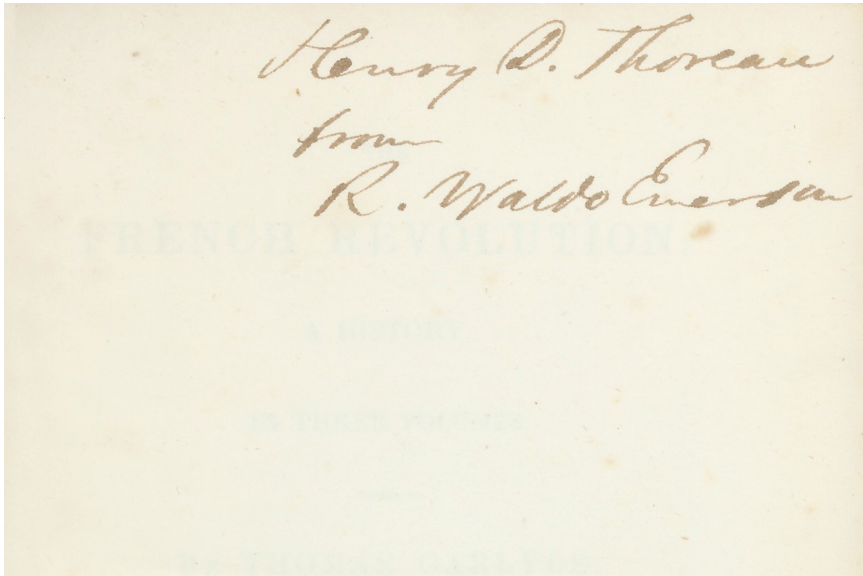 Henry D. Thoreau
from
R. Waldo Emerson
FRENCH REVOLUTION
A HISTORY
IN THREE VOLUMES
BY THOMAS CARLYLE